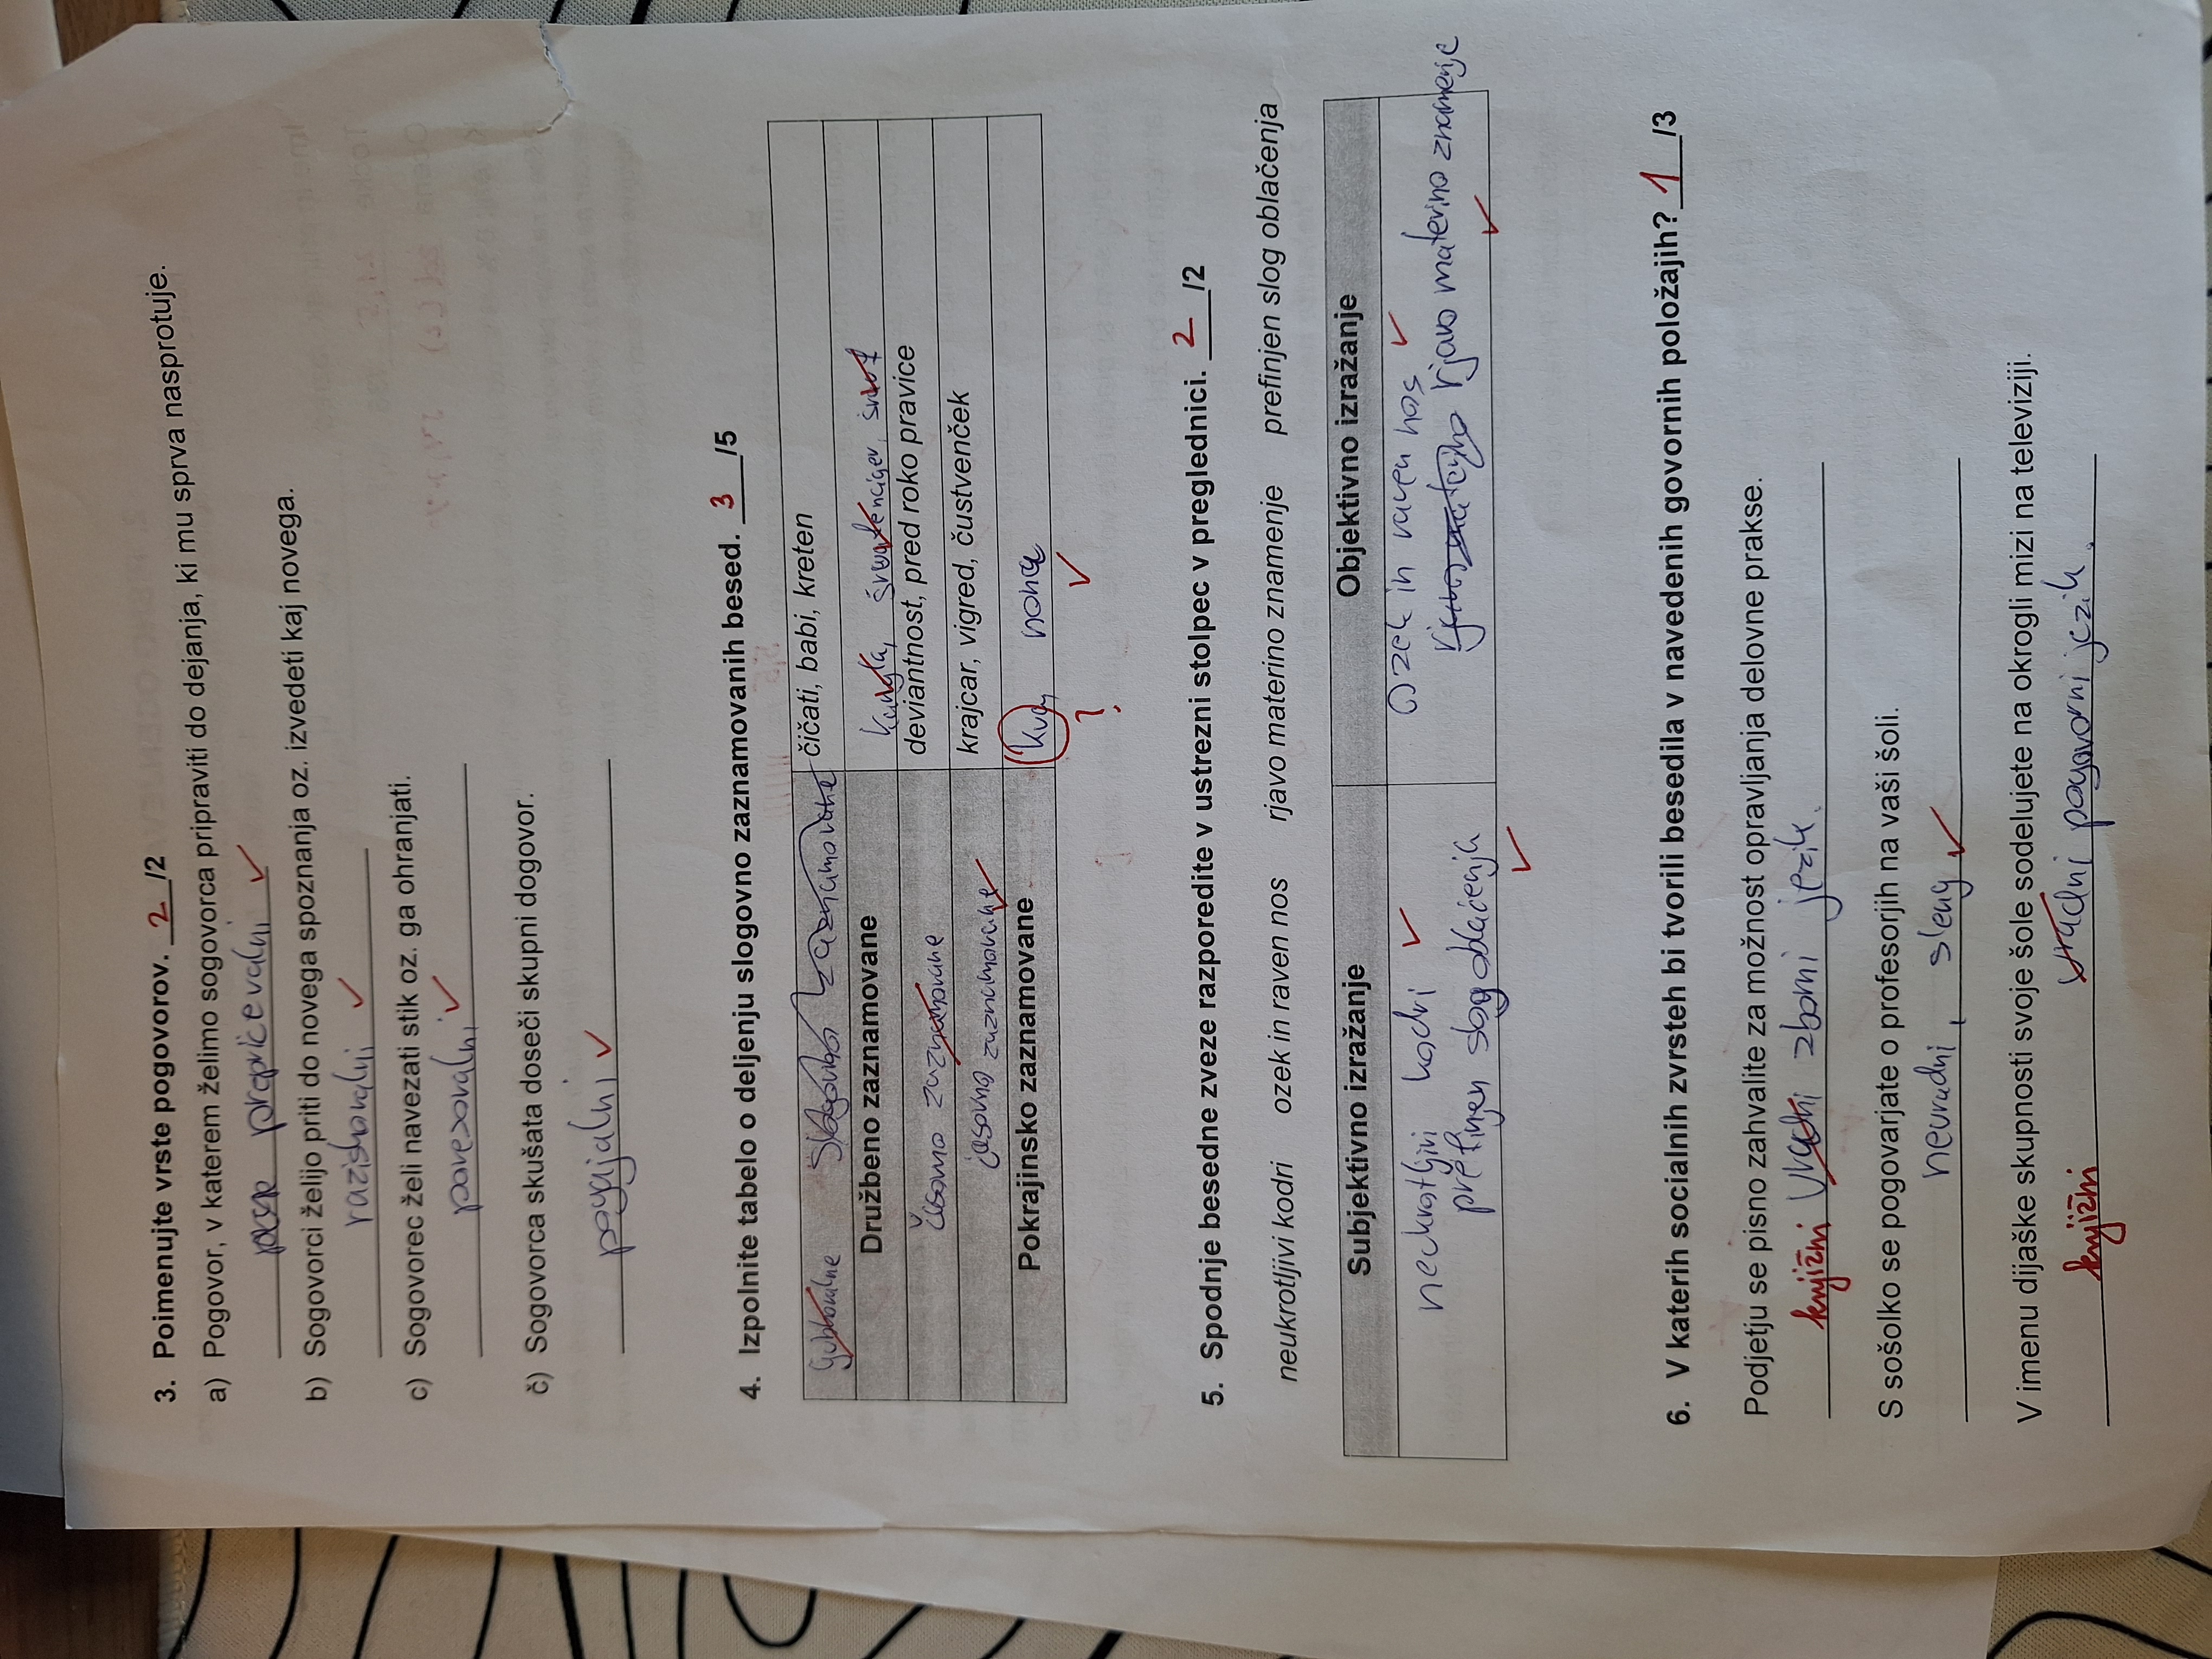 3. Poimenujte vrste pogovorov. 2 /2
a) Pogovor, v katerem želimo sogovorca pripraviti do dejanja, ki mu sprva nasprotuje.
propričevalni
b) Sogovorci želijo priti do novega spoznanja oz. izvedeti kaj novega.
raziskovalni
c) Sogovorec želi navezati stik oz. ga ohranjati.
povezovalni
č) Sogovorca skušata doseči skupni dogovor.
pogajalni
4. Izpolnite tabelo o deljenju slogovno zaznamovanih besed. 3 /5
Slogovno zaznamovane čičati, babi, kreten
Družbeno zaznamovane kangla,
časovno zaznamovane deviantnost, pred roko pravice
časovno zaznamovane krajcar, vigred, čustvenček
Pokrajinsko zaznamovane nona
?
5. Spodnje besedne zveze razporedite v ustrezni stolpec v preglednici. 2 /2
neukrotljivi kodri ozek in raven nos rjavo materino znamenje prefinjen slog oblačenja
Subjektivno izražanje Objektivno izražanje
neukrotljivi kodri Ozek in raven nos
prefinjen slog oblačenja rjavo materino rjavo materino znamenje
6. V katerih socialnih zvrsteh bi tvorili besedila v navedenih govornih položajih? 1 /3
Podjetju se pisno zahvalite za možnost opravljanja delovne prakse.
knjižni Uradni zborni jezik.
S sošolko se pogovarjate o profesorjih na vaši šoli.
neuradni, sleng
V imenu dijaške skupnosti svoje šole sodelujete na okrogli mizi na televiziji.
knjižni Uradni pogovorni jezik.